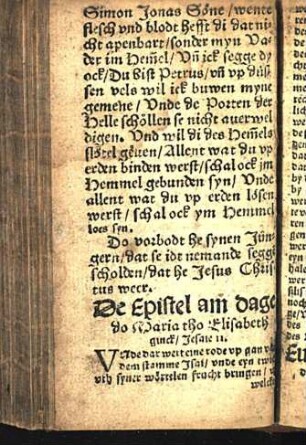 Simon Jonas Söne/wente
flesch vnd blodt hefft di dat ni-
cht apenbart/sonder myn Va-
der im Hemel/Vn ick segge dy
ock/Du bist Petrus/vn vp düs-
sen vels wil ick buwen myne
gemene/Vnde de Porten der
Helle schöllen se nicht auerwel
digen. Vnd wil di des Hemels
slötel geuen/Allent wat du vp
erden binden werst/schal ock jm
Hemmel gebunden syn/Vnde
allent wat du vp erden lösen
werst/schal ock ym Hemmel
loes syn.
Do vorbodt he synen Jün-
gern/dat se idt nemande segge
scholden/dat he Jesus Chris
tus weer.
De Epistel am dage
do Maria tho Elisabeth
ginck/Jesaie 11.
Vnde dar wert eine rode vp gan v
dem stamme Isai/vnde eyn twi
vth syner wörtelen frucht bringen/
welcke